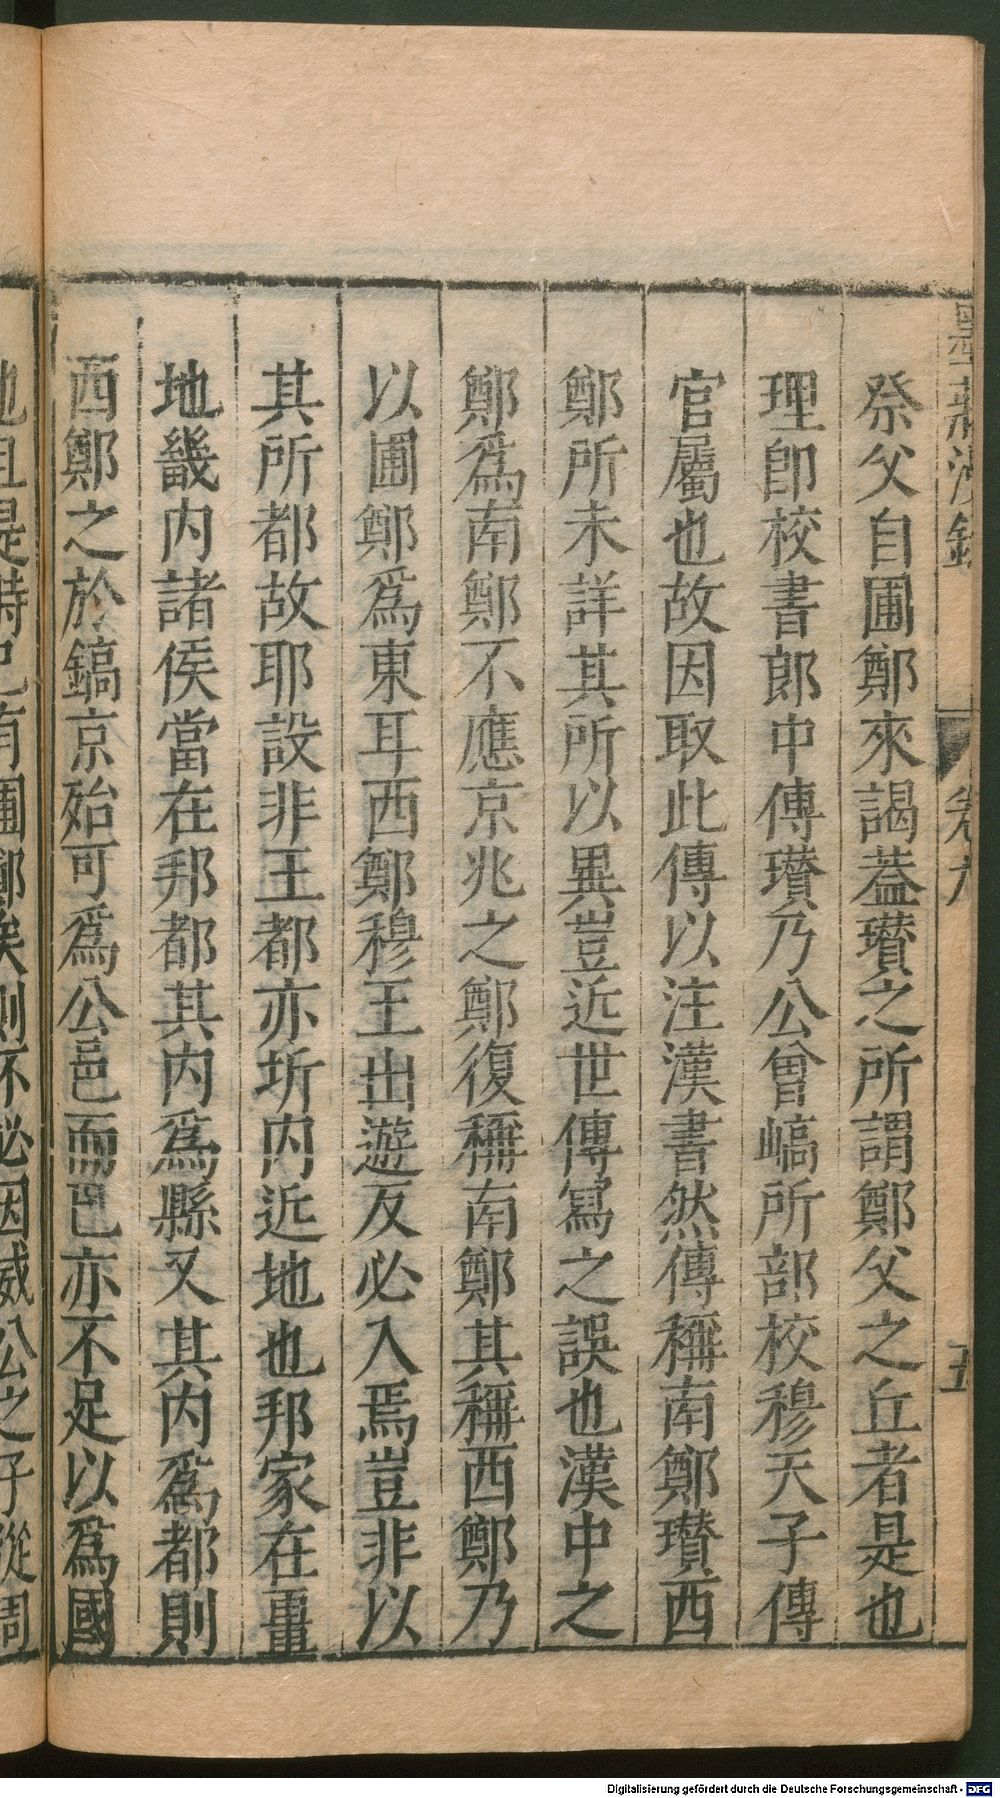 祭父自圃鄭來謁葢瓉之所謂鄭父之丘者是也
理卽校書郎中傳瓉乃公曾嵪所部校穆天子傳
官屬也故因取此傳以注漢書然傳稱南鄭瓉西
鄭所未詳其所以異豈近世傳寫之誤也漢中之
鄭爲南鄭不應京兆之鄭復稱南鄭其稱西鄭乃
以圃鄭爲東耳西鄭穆王出遊反必入焉豈非以
其所都故耶設非王都亦圻内近地也邦家在畺
地畿内諸侯當在邦都其内爲縣又其内爲都則
西鄭之於鎬京殆可爲公邑而邑亦不足以爲國
地且是時已有圃鄭矣則不必因威公之子從周
墨莊漫錄
卷九
五
Digitalisierung gefördert durch die Deutsche Forschungsgemeinschaft - DFG